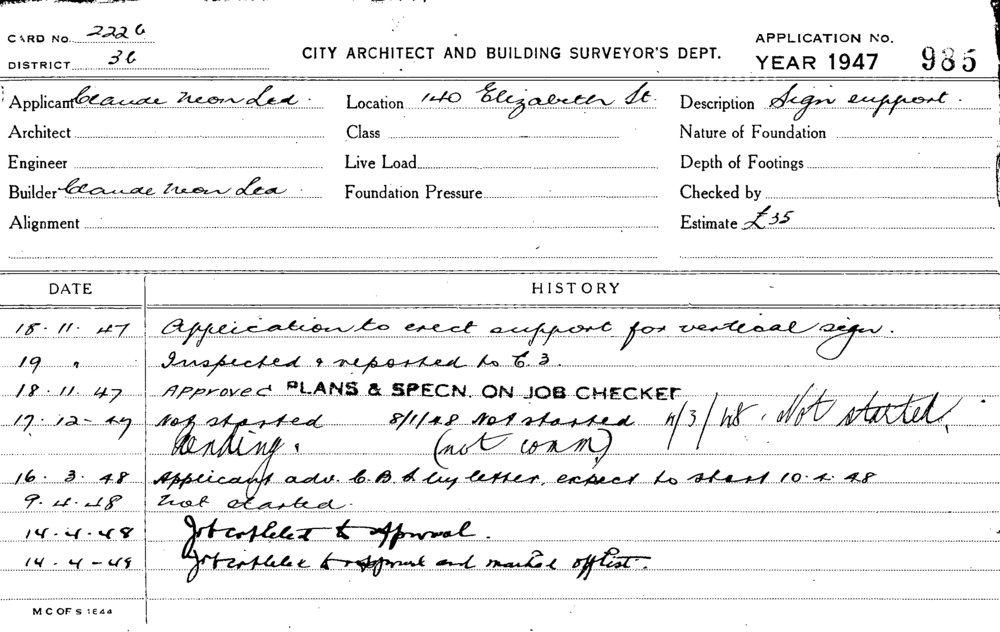 CARD No. 2226
DISTRICT 36
CITY ARCHITECT AND BUILDING SURVEYOR'S DEPT.
APPLICATION No.
YEAR 1947 985
Applicant Claude Neon Ltd. Location 140 Elizabeth St. Description Sign support.
Architect Class Nature of Foundation
Engineer Live Load Depth of Footings
Builder Claude Neon Ltd Foundation Pressure Checked by
Alignment Estimate £35
DATE HISTORY
18.11.47 Application to erect support for vertical sign.
19 " Inspected & reported to C.3.
18.11.47 Approved PLANS & SPECN. ON JOB CHECKED
17.12-47 Not started 8/1/48 Not started /3/48. Not started.
Pending. (not comm)
16.3.48 Applicant adv. C.B.S by letter, expect to start 10.4.48
9.4.48 Not started.
14.4.48 Job completed to approval.
14.4-48 Job complete to approval and marked off list.
M C OF S 1644